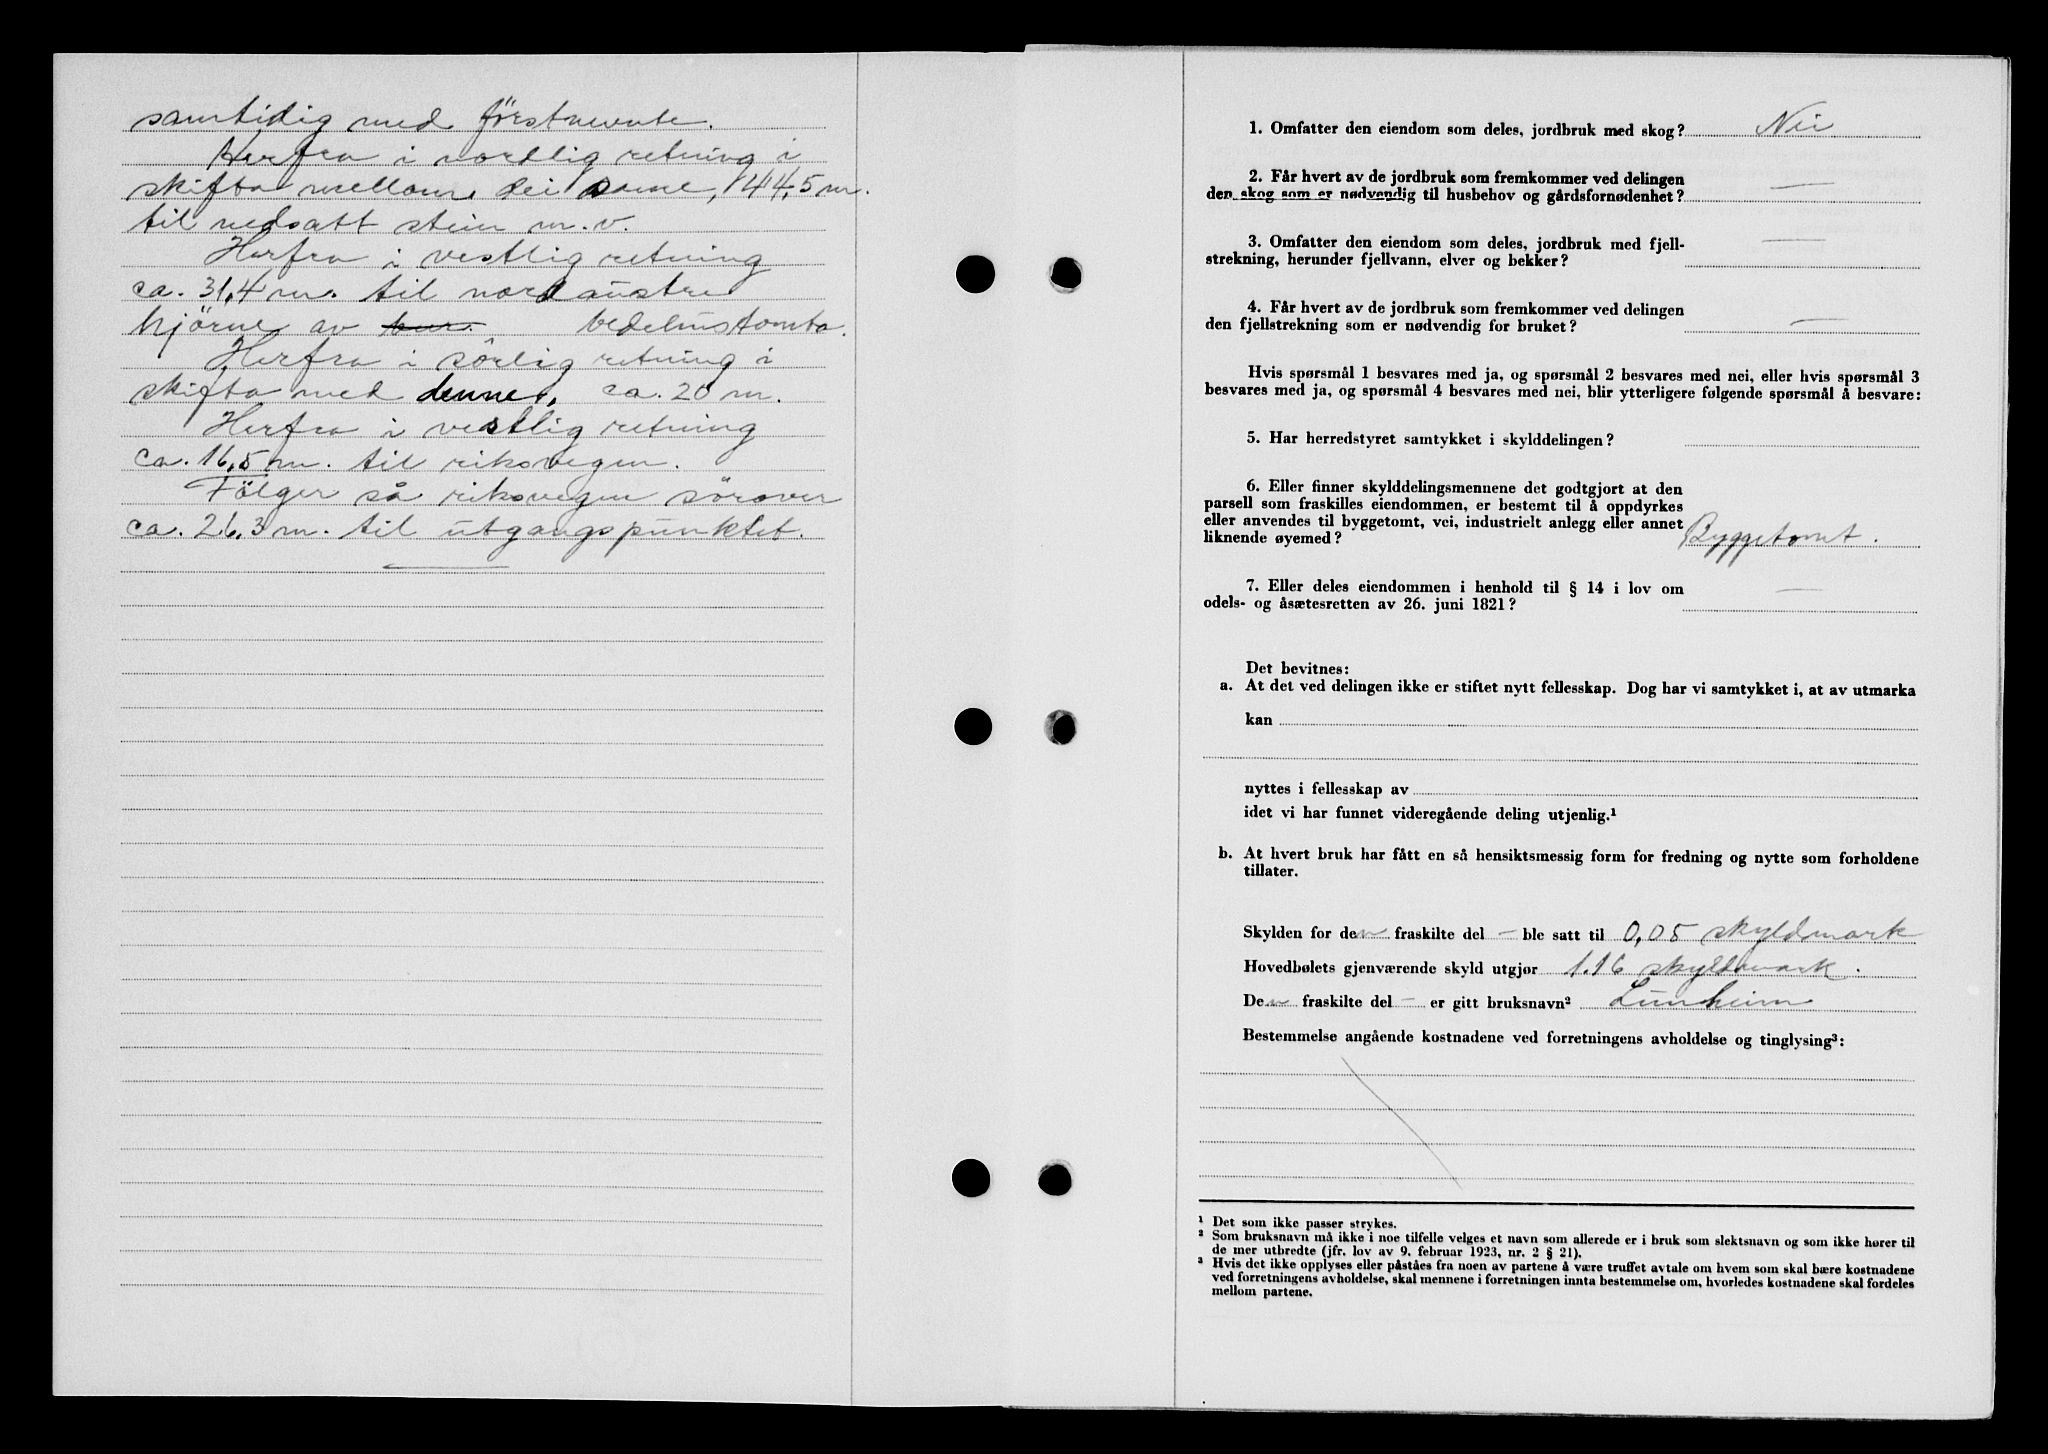 samtidig med förstnevnte.
Herfra i nordlig retning i
skifta mellom dei same, 44,5 m.
til nedsatt stein m.v.
Herfra i vestlig retning
ca. 31,4 m. til nordaustre
hjörne av bur. bedehustomta.
Herfra i sörlig retning i
skifta med denne, ca. 20 m.
Herfra i vestlig retning
ca. 16,5 m. til riksvegen.
Fölger så riksvegen sörover
ca. 26,3 m. til utgangspunktet.
1. Omfatter den eiendom som deles, jordbruk med skog? Nei
2. Får hvert av de jordbruk som fremkommer ved delingen
den skog som er nødvendig til husbehov og gårdsfornødenhet? —
3. Omfatter den eiendom som deles, jordbruk med fjell-
strekning, herunder fjellvann, elver og bekker? —
4. Får hvert av de jordbruk som fremkommer ved delingen
den fjellstrekning som er nødvendig for bruket? —
Hvis spørsmål 1 besvares med ja, og spørsmål 2 besvares med nei, eller hvis spørsmål 3
besvares med ja, og spørsmål 4 besvares med nei, blir ytterligere følgende spørsmål å besvare:
5. Har herredstyret samtykket i skylddelingen?
6. Eller finner skylddelingsmennene det godtgjort at den
parsell som fraskilles eiendommen, er bestemt til å oppdyrkes
eller anvendes til byggetomt, vei, industrielt anlegg eller annet
liknende øyemed? Byggetomt.
7. Eller deles eiendommen i henhold til § 14 i lov om
odels- og åsætesretten av 26. juni 1821? —
Det bevitnes:
a. At det ved delingen ikke er stiftet nytt fellesskap. Dog har vi samtykket i, at av utmarka
kan
nyttes i fellesskap av
idet vi har funnet videregående deling utjenlig.¹
b. At hvert bruk har fått en så hensiktsmessig form for fredning og nytte som forholdene
tillater.
Skylden for den fraskilte del — ble satt til 0,05 skyldmark
Hovedbølets gjenværende skyld utgjør 1.16 skyldmark.
Den fraskilte del — er gitt bruksnavn² Lunheim
Bestemmelse angående kostnadene ved forretningens avholdelse og tinglysing³:
¹ Det som ikke passer strykes.
² Som bruksnavn må ikke i noe tilfelle velges et navn som allerede er i bruk som slektsnavn og som ikke hører til
de mer utbredte (jfr. lov av 9. februar 1923, nr. 2 § 21).
³ Hvis det ikke opplyses eller påståes fra noen av partene å være truffet avtale om hvem som skal bære kostnadene
ved forretningens avholdelse, skal mennene i forretningen innta bestemmelse om, hvorledes kostnadene skal fordeles
mellom partene.